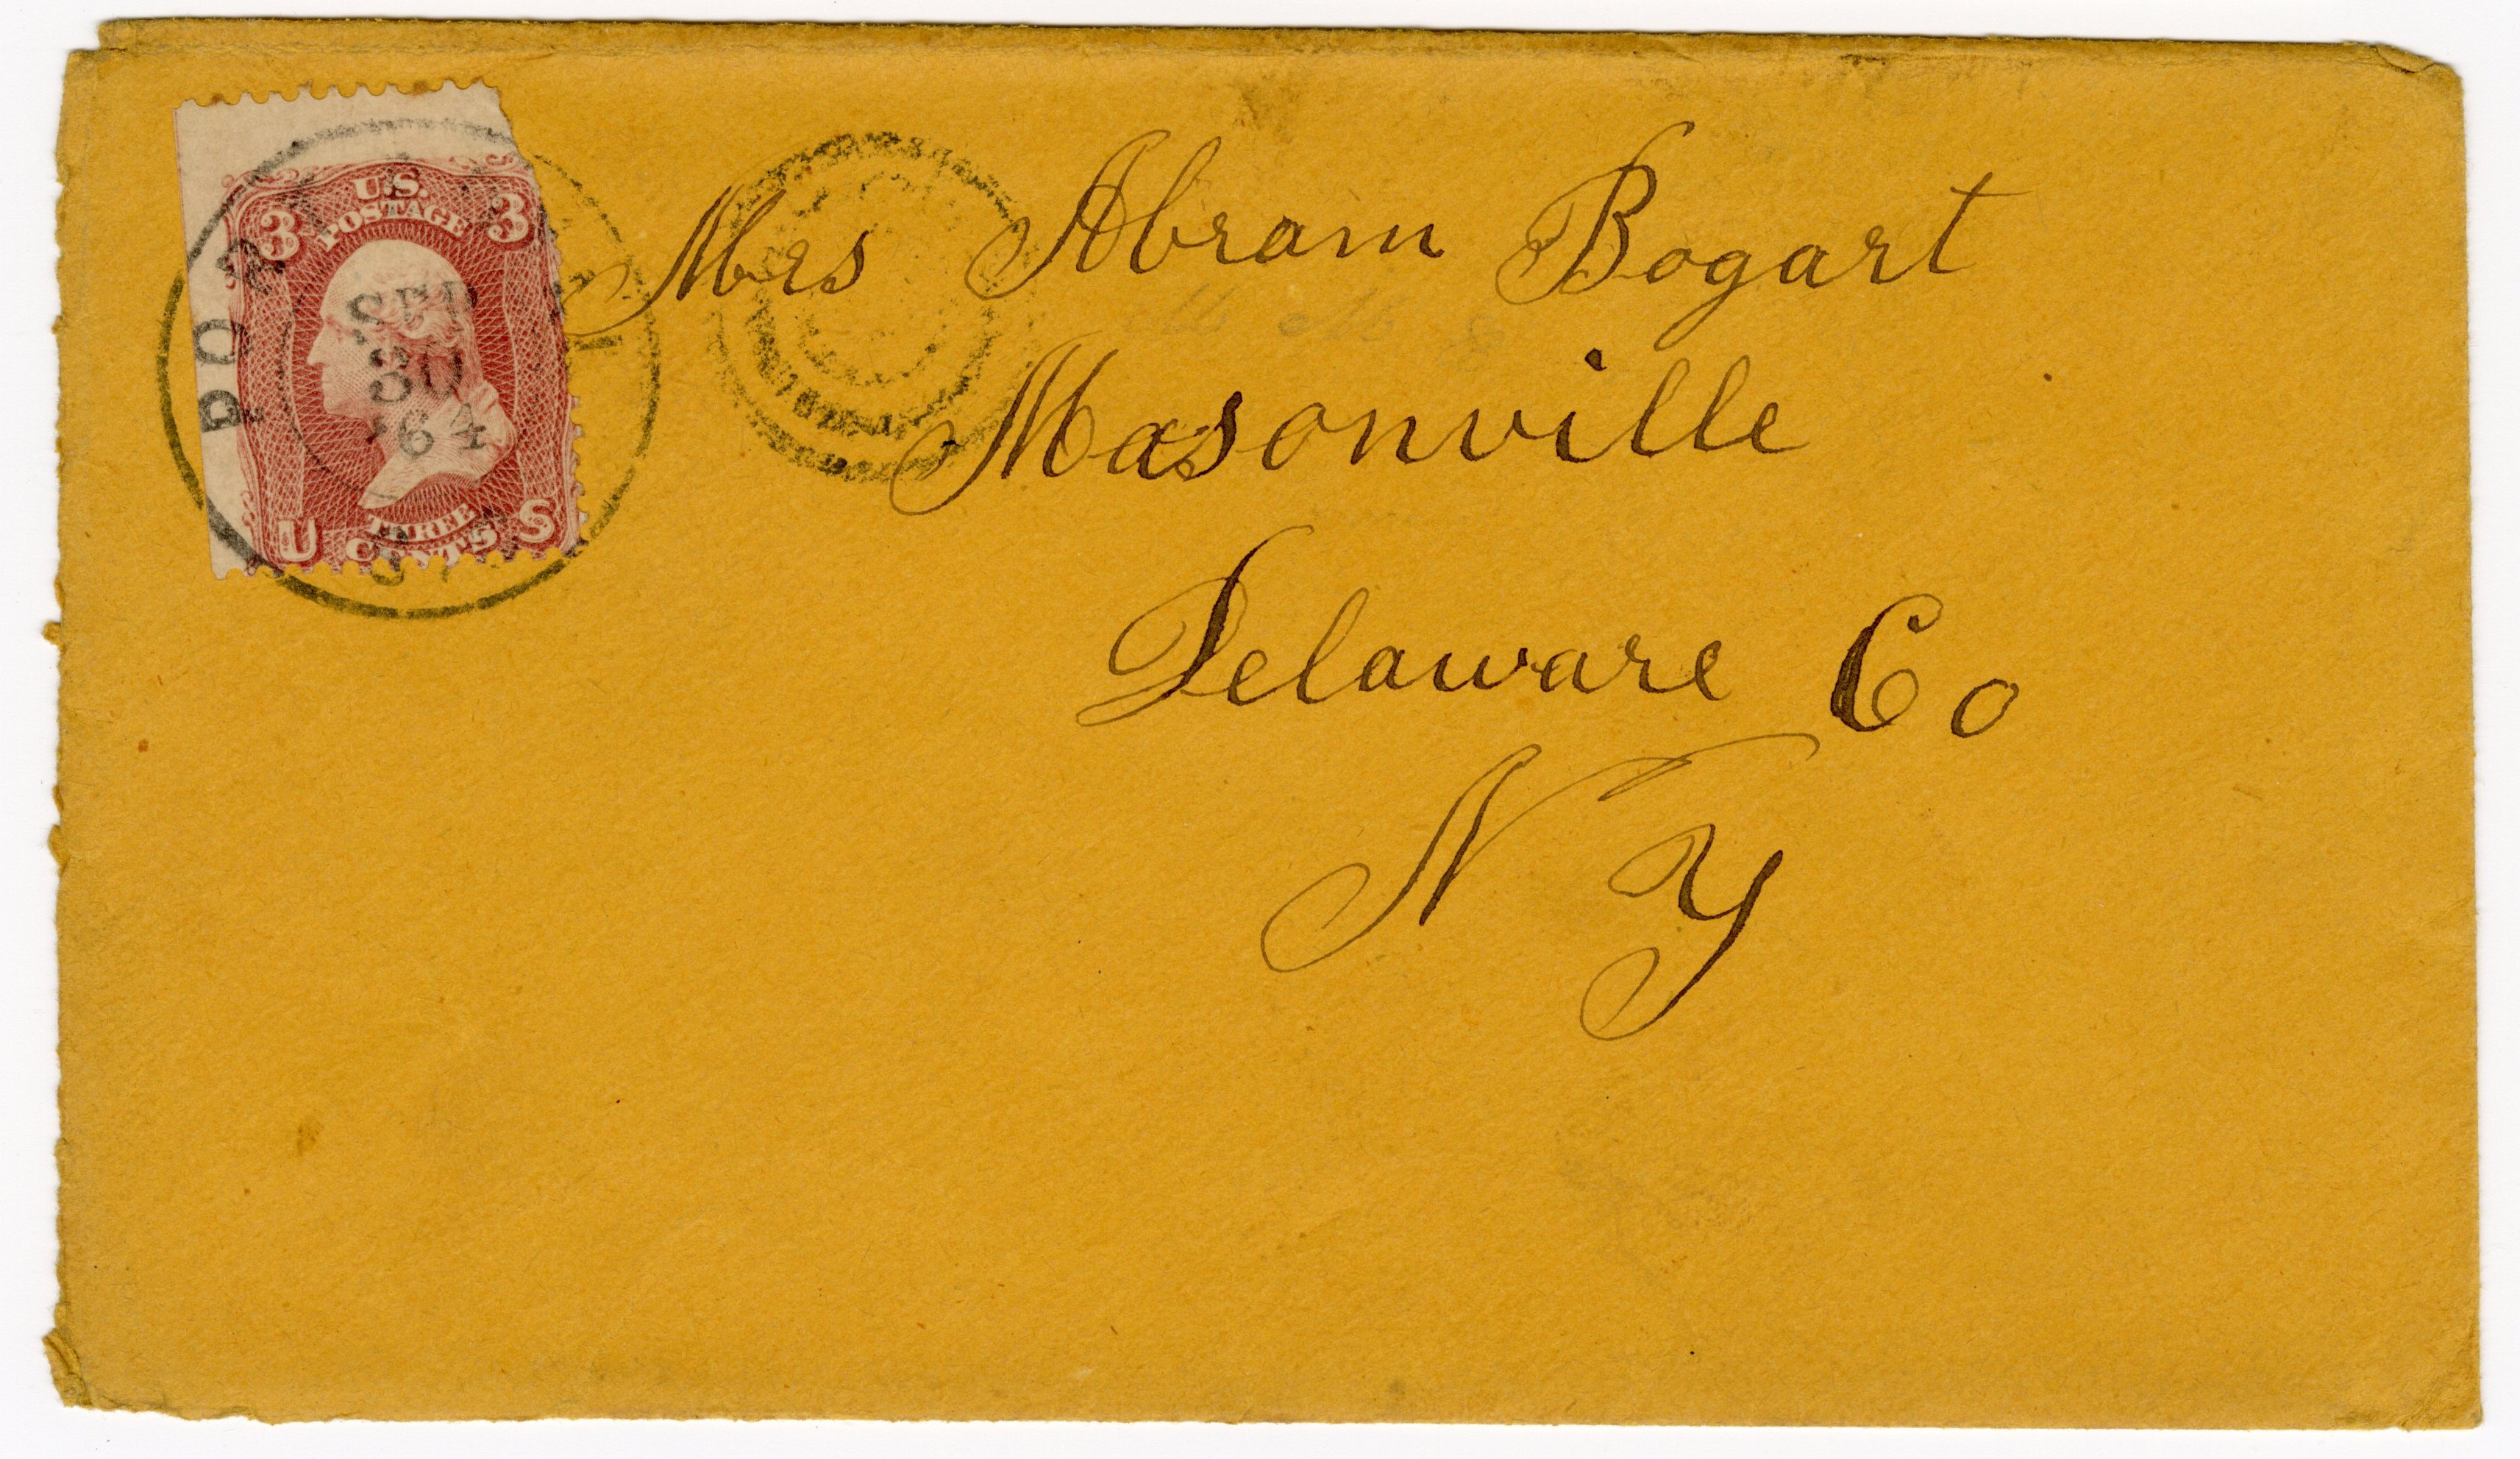 U.S.
POSTAGE
3 3
SEP
30
'64
THREE
U CENTS S
Mrs Abram Bogart
Masonville
Delaware Co
N Y